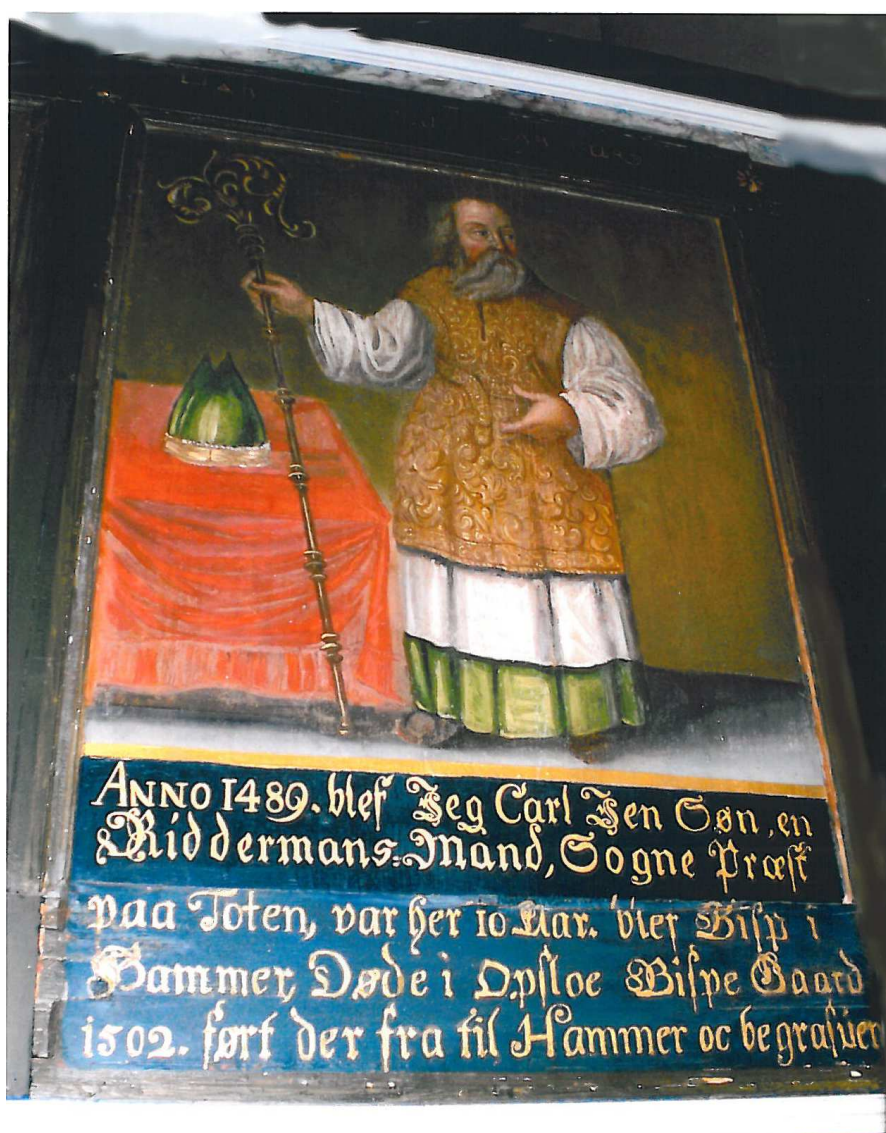 ANNO 1489. blef Jeg Carl Jen Søn, en
Riddermans=Mand, Sogne Præst
paa Toten, var her 10 Aar. blef Bisp i
Hammer, Døde i Opsloe Bispe Gaard
1502. ført der fra til Hammer oc begrafuen